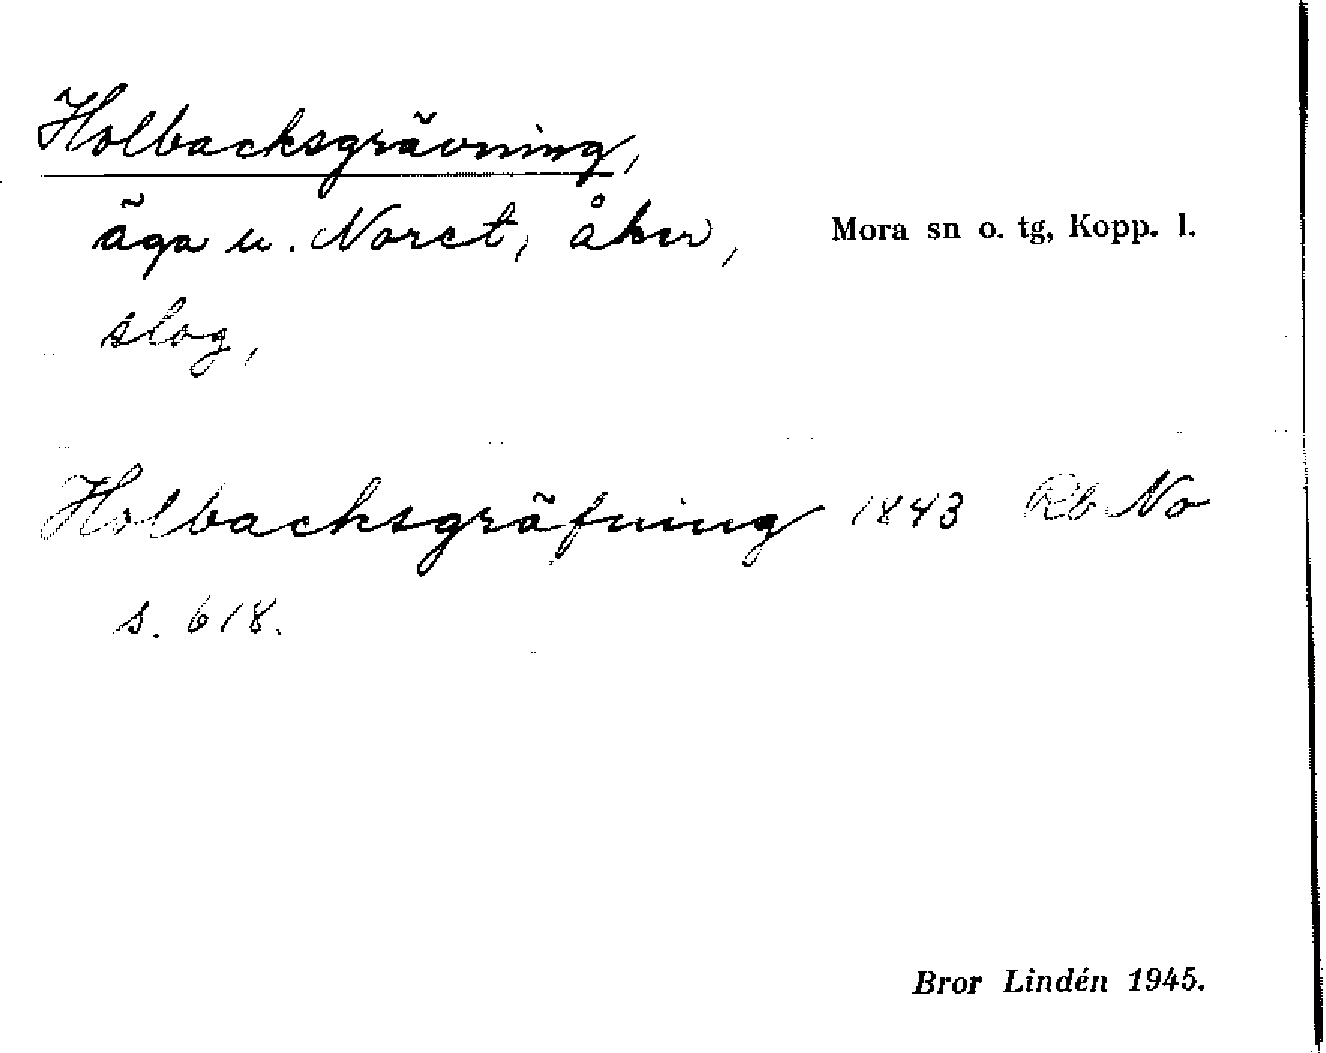 Holbacksgrävning,
äga u. Noret, åker,
Mora sn o. tg, Kopp. l.
slog,
Holbacksgräfning 1843 Rb No
s. 618.
Bror Lindén 1945.